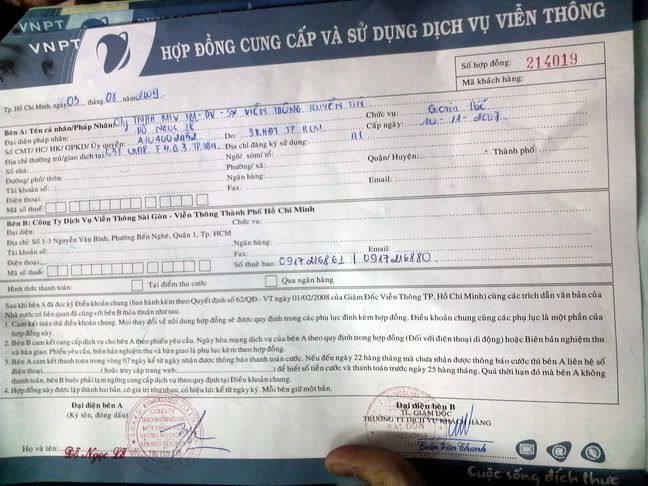 VNPT
VNPT
HỢP ĐỒNG CUNG CẤP VÀ SỬ DỤNG DỊCH VỤ VIỄN THÔNG
Số hợp đồng: 214019
Mã khách hàng:
Tp. Hồ Chí Minh, ngày 03 tháng 08 năm 2009
Bên A: Tên cá nhân/Pháp Nhân: Cty TNHH MTV TM - DV - SX VIỄN THÔNG
Đại diện pháp nhân: Chức vụ: Giám Đốc
Số CMT/ HC/ HK/ GPKD/ Ủy quyền: Do: SKHĐT TP. HCM Cấp ngày: 10-11-2007
Địa chỉ thường trú/giao dịch tại: Địa chỉ đăng ký sử dụng:
Số nhà: Ngõ/ xóm/ tổ: Quận/ Huyện: Thành phố:
Đường/ phố/ thôn: Phường/ xã:
Tài khoản số: Ngân hàng:
Điện thoại: Fax: Email:
Mã số thuế:
Bên B: Công Ty Dịch Vụ Viễn Thông Sài Gòn - Viễn Thông Thành Phố Hồ Chí Minh
Đại diện: Chức vụ:
Địa chỉ: Số 1-3 Nguyễn Văn Bình, Phường Bến Nghé, Quận 1, Tp. HCM
Tài khoản số: Ngân hàng:
Điện thoại: Fax: Email:
Mã số thuế: Số thuê bao: 0917216861 | 0917216880
Hình thức thanh toán: Tại điểm thu cước Qua ngân hàng
Sau khi bên A đã đọc kỹ Điều khoản chung (ban hành kèm theo Quyết định số 62/QĐ - VT ngày 01/02/2008 của Giám Đốc Viễn Thông TP. Hồ Chí Minh) cùng các trích dẫn văn bản của
Nhà nước có liên quan đã cùng với bên B thỏa thuận như sau:
1. Cam kết tuân thủ điều khoản chung. Mọi thay đổi về nội dung hợp đồng sẽ được quy định trong các phụ lục đính kèm hợp đồng. Điều khoản chung cùng các phụ lục là một phần của
hợp đồng này.
2. Bên B cam kết cung cấp dịch vụ cho bên A theo phiếu yêu cầu. Ngày hòa mạng dịch vụ của bên A theo quy định trong hợp đồng (Đối với điện thoại di động) hoặc Biên bản nghiệm thu
và bàn giao. Phiếu yêu cầu, biên bản nghiệm thu và bàn giao là phụ lục kèm theo hợp đồng.
3. Bên A cam kết thanh toán trong vòng 07 ngày kể từ ngày nhận được thông báo thanh toán cước. Nếu đến ngày 22 hàng tháng mà chưa nhận được thông báo cước thì bên A liên hệ số
điện thoại ( hoặc truy cập trang web: ) để biết số tiền cước và thanh toán trước ngày 25 hàng tháng. Quá thời hạn đó mà bên A không
thanh toán, bên B buộc phải tạm ngừng cung cấp dịch vụ theo quy định tại Điều khoản chung.
4. Hợp đồng này được lập thành hai bản, có giá trị như nhau, có hiệu lực kể từ ngày ký. Mỗi bên giữ một bản.
Đại diện bên A
(Ký tên, đóng dấu)
Đại diện bên B
TL. GIÁM ĐỐC
TRƯỞNG TT DỊCH VỤ KHÁCH HÀNG
CÔNG TY
SÀI GÒN
Họ và tên: Đỗ Ngọc
Trần Văn Thanh
Cuộc sống đích thực